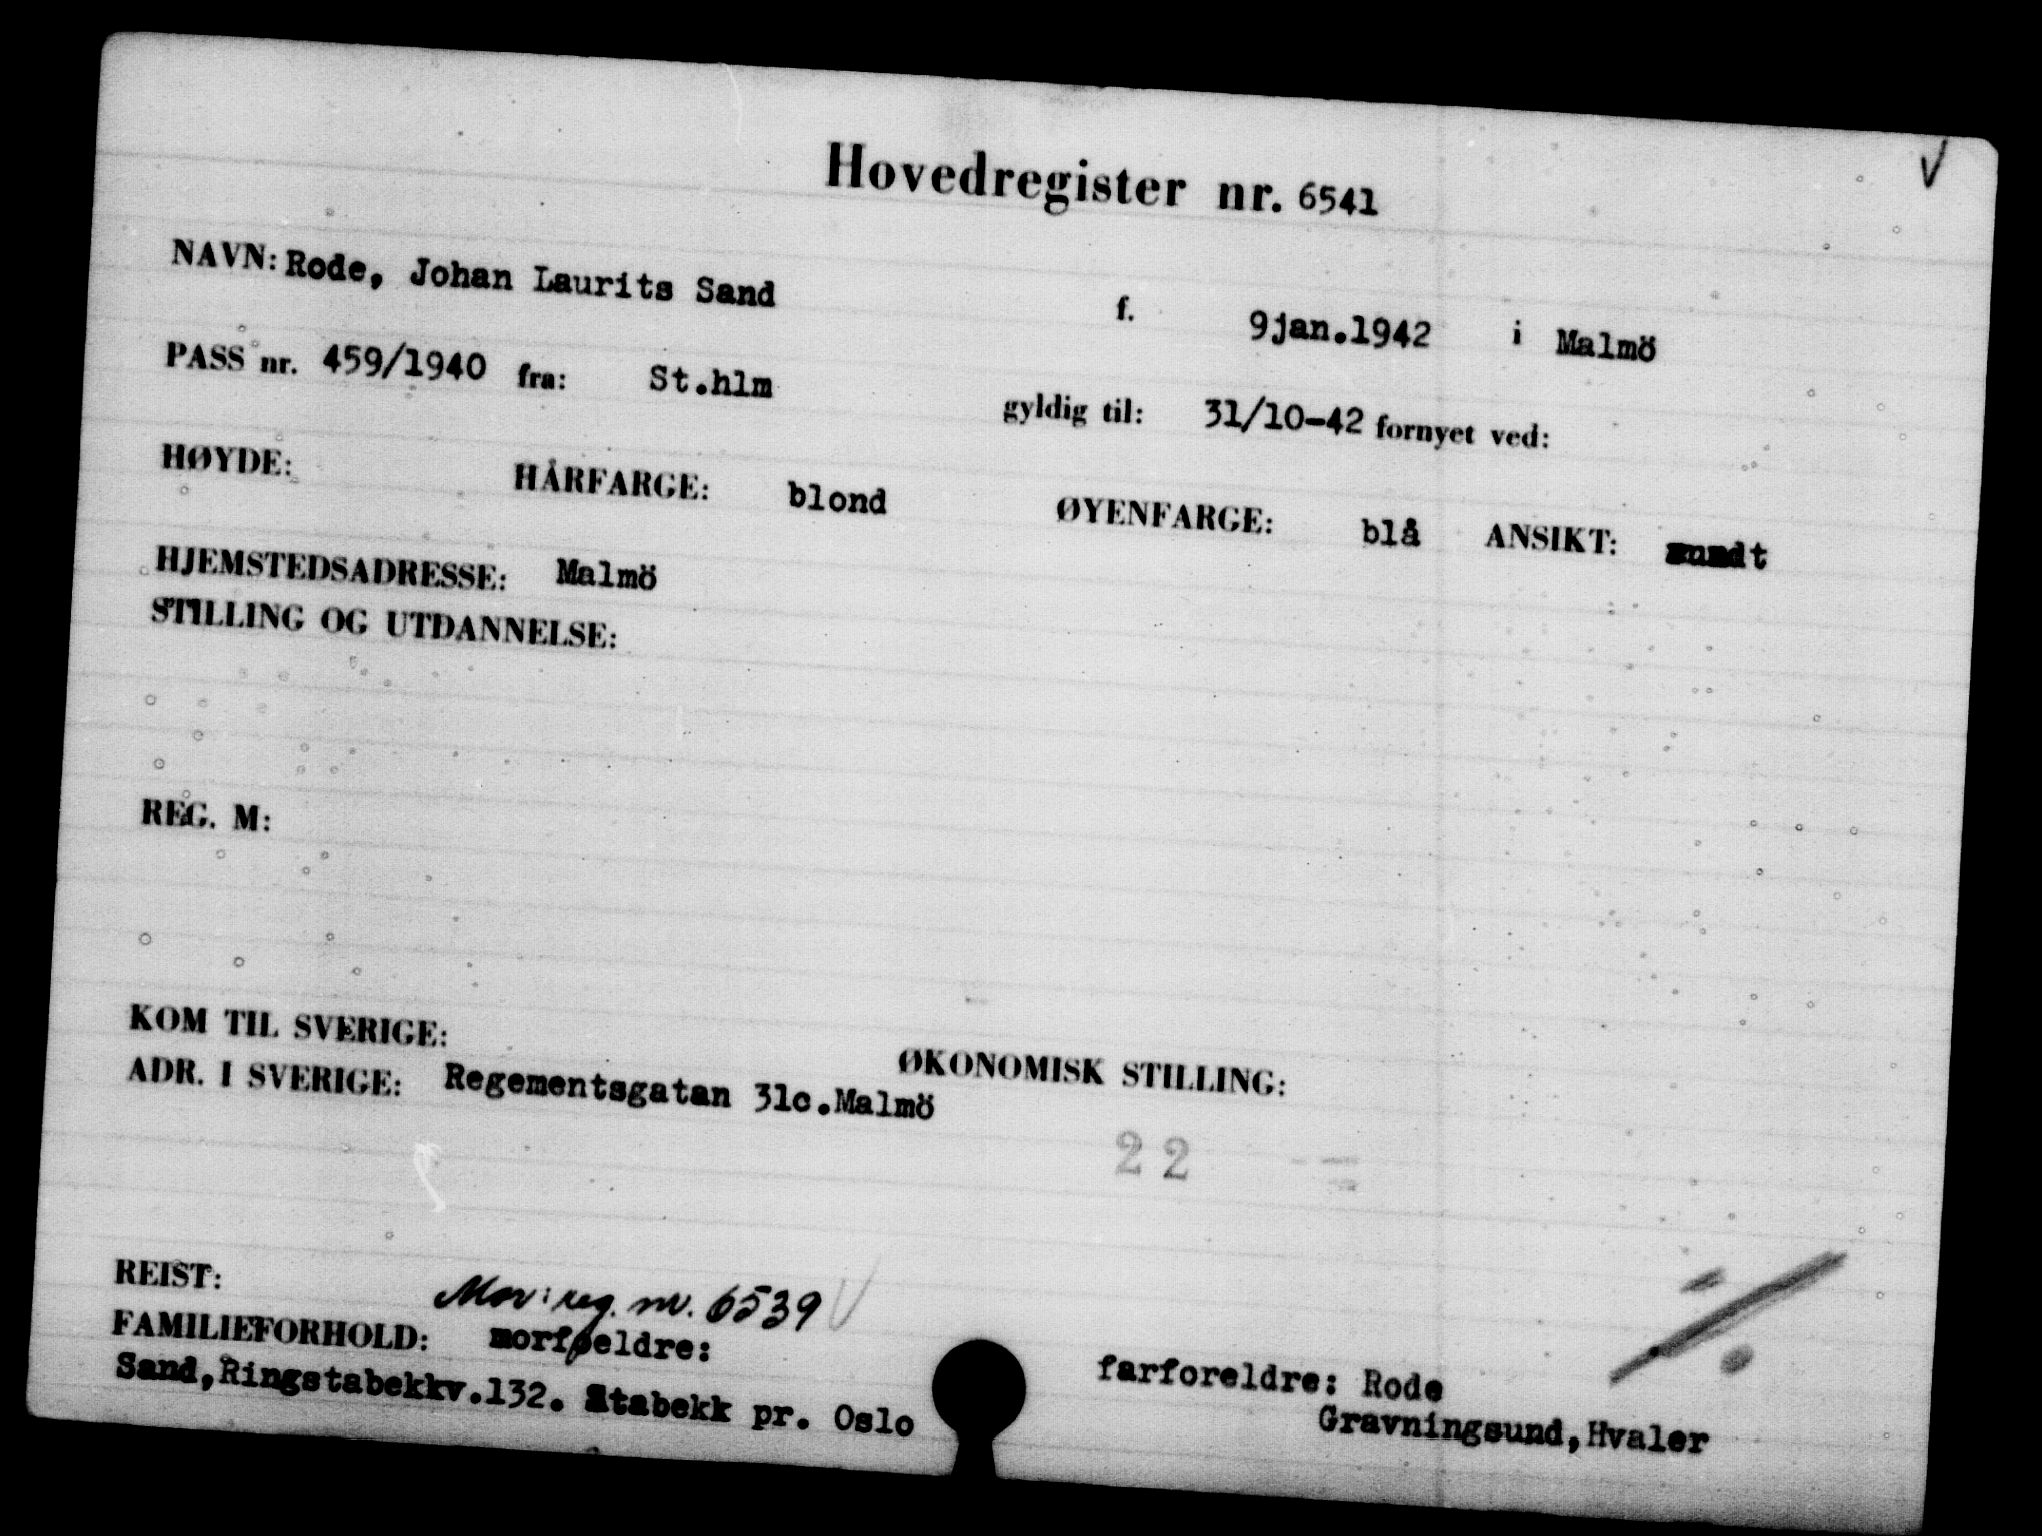 Hovedregister nr. 6541
NAVN: Rode, Johan Laurits Sand f. 9jan.1942 i Malmö
PASS nr. 459/1940 fra: St.hlm gyldig til: 31/10-42 fornyet ved:
HØYDE: HÅRFARGE: blond ØYENFARGE: blå ANSIKT:
HJEMSTEDSADRESSE: Malmö
STILLING OG UTDANNELSE:
REG. M:
KOM TIL SVERIGE: ØKONOMISK STILLING:
ADR. I SVERIGE: Regementsgatan 31c.Malmö
22
REIST: Mor: reg. nr. 6539
FAMILIEFORHOLD: morfoeldre: farforeldre: Rode
Sand,Ringstabekkv.132. Stabekk pr. Oslo Gravningsund,Hvaler